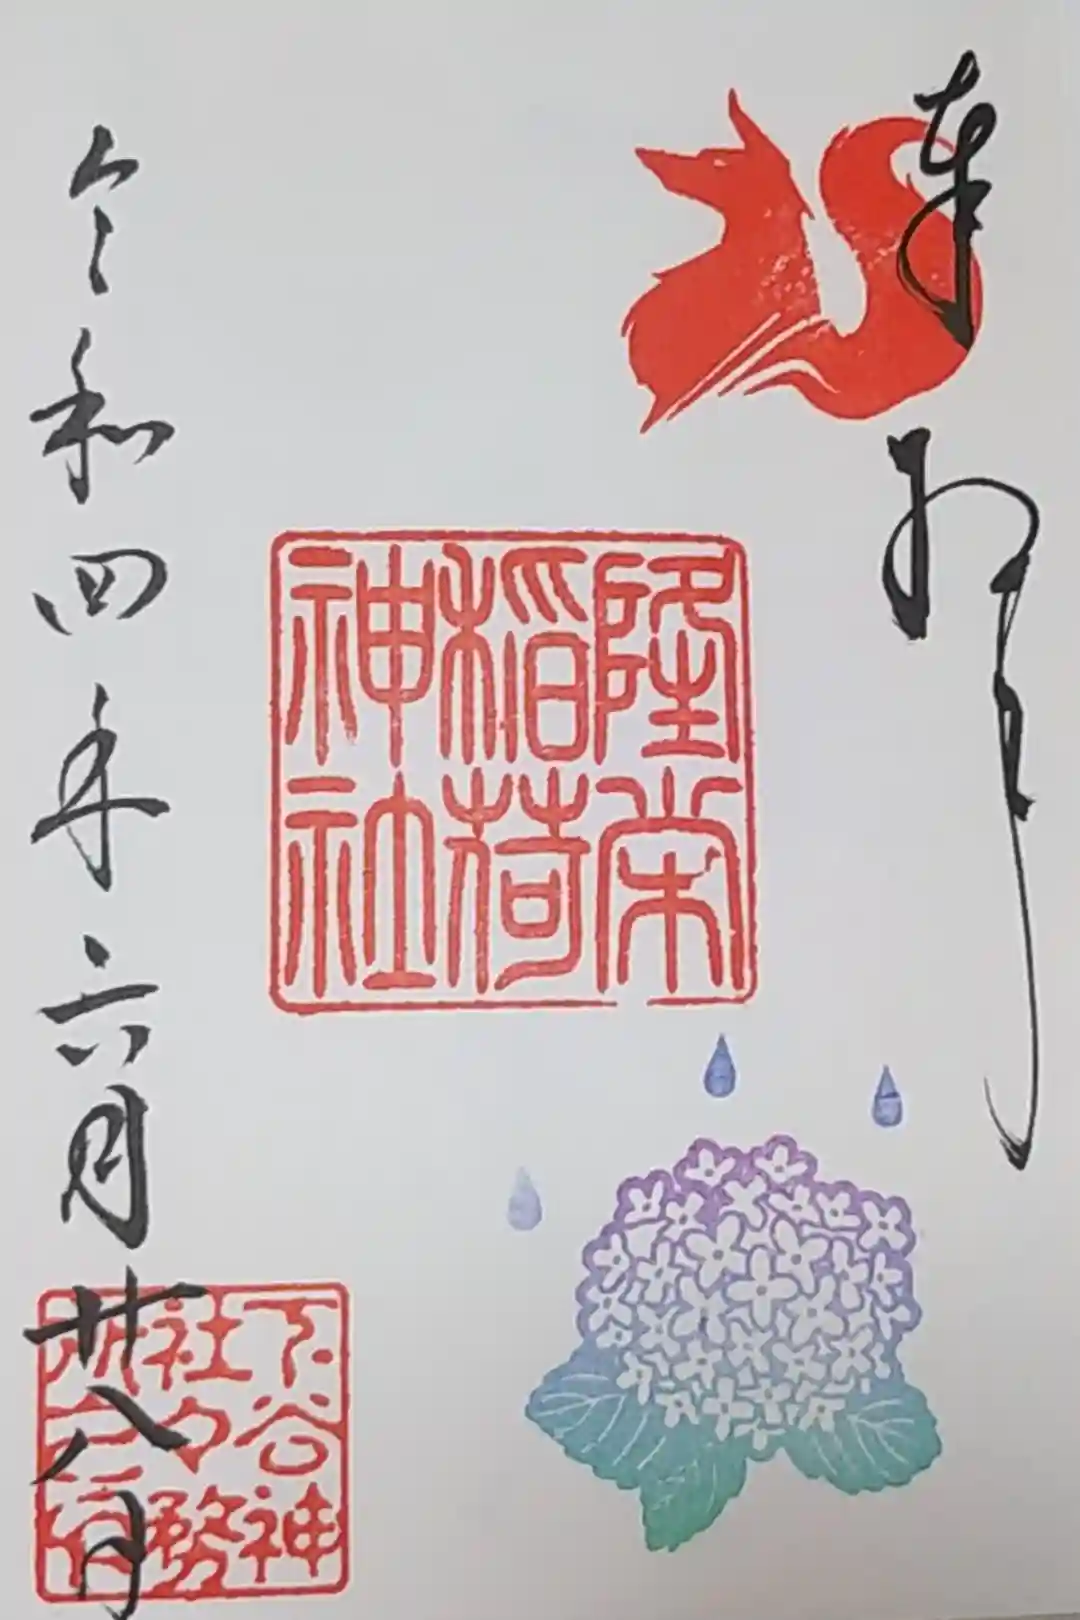 奉拝
隆栄
稲荷
神社
令和四年六月廿八日
下谷神
社々務
所之印